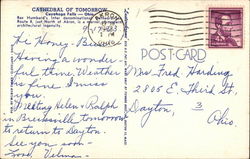 CATHEDRAL OF TOMORROW
Cuyahoga Falls — Ohio
Rex Humbard's, Inter denominational Cathedral
Route 8, just North of Akron, is a
architectural ingenuity.
Having a wonder-
ful time. Weather
is fine. Wish
you
Meeting Helen & Ralph
in Brecksville tomorrow
to return to Dayton.
See you soon -
Love, Velma
POST CARD
Mrs. Fred Harding
2805 E. Third St,
Dayton, 3
Ohio